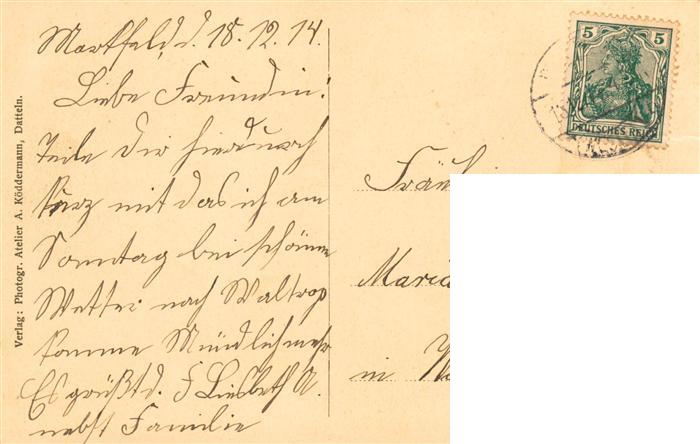 Martfeld, d. 18.12.14.
Liebe Freundin!
Teile Dir hierdurch
kurz mit das ich am
Sonntag bei schönem
Wetter nach Waltrop
komme Mündlich mehr
Es grüßt d. F Liesbeth A.
nebst Familie
Verlag: Photogr. Atelier A. Köddermann, Datteln.
5 5
DEUTSCHES REICH
Fräul
Maria
in